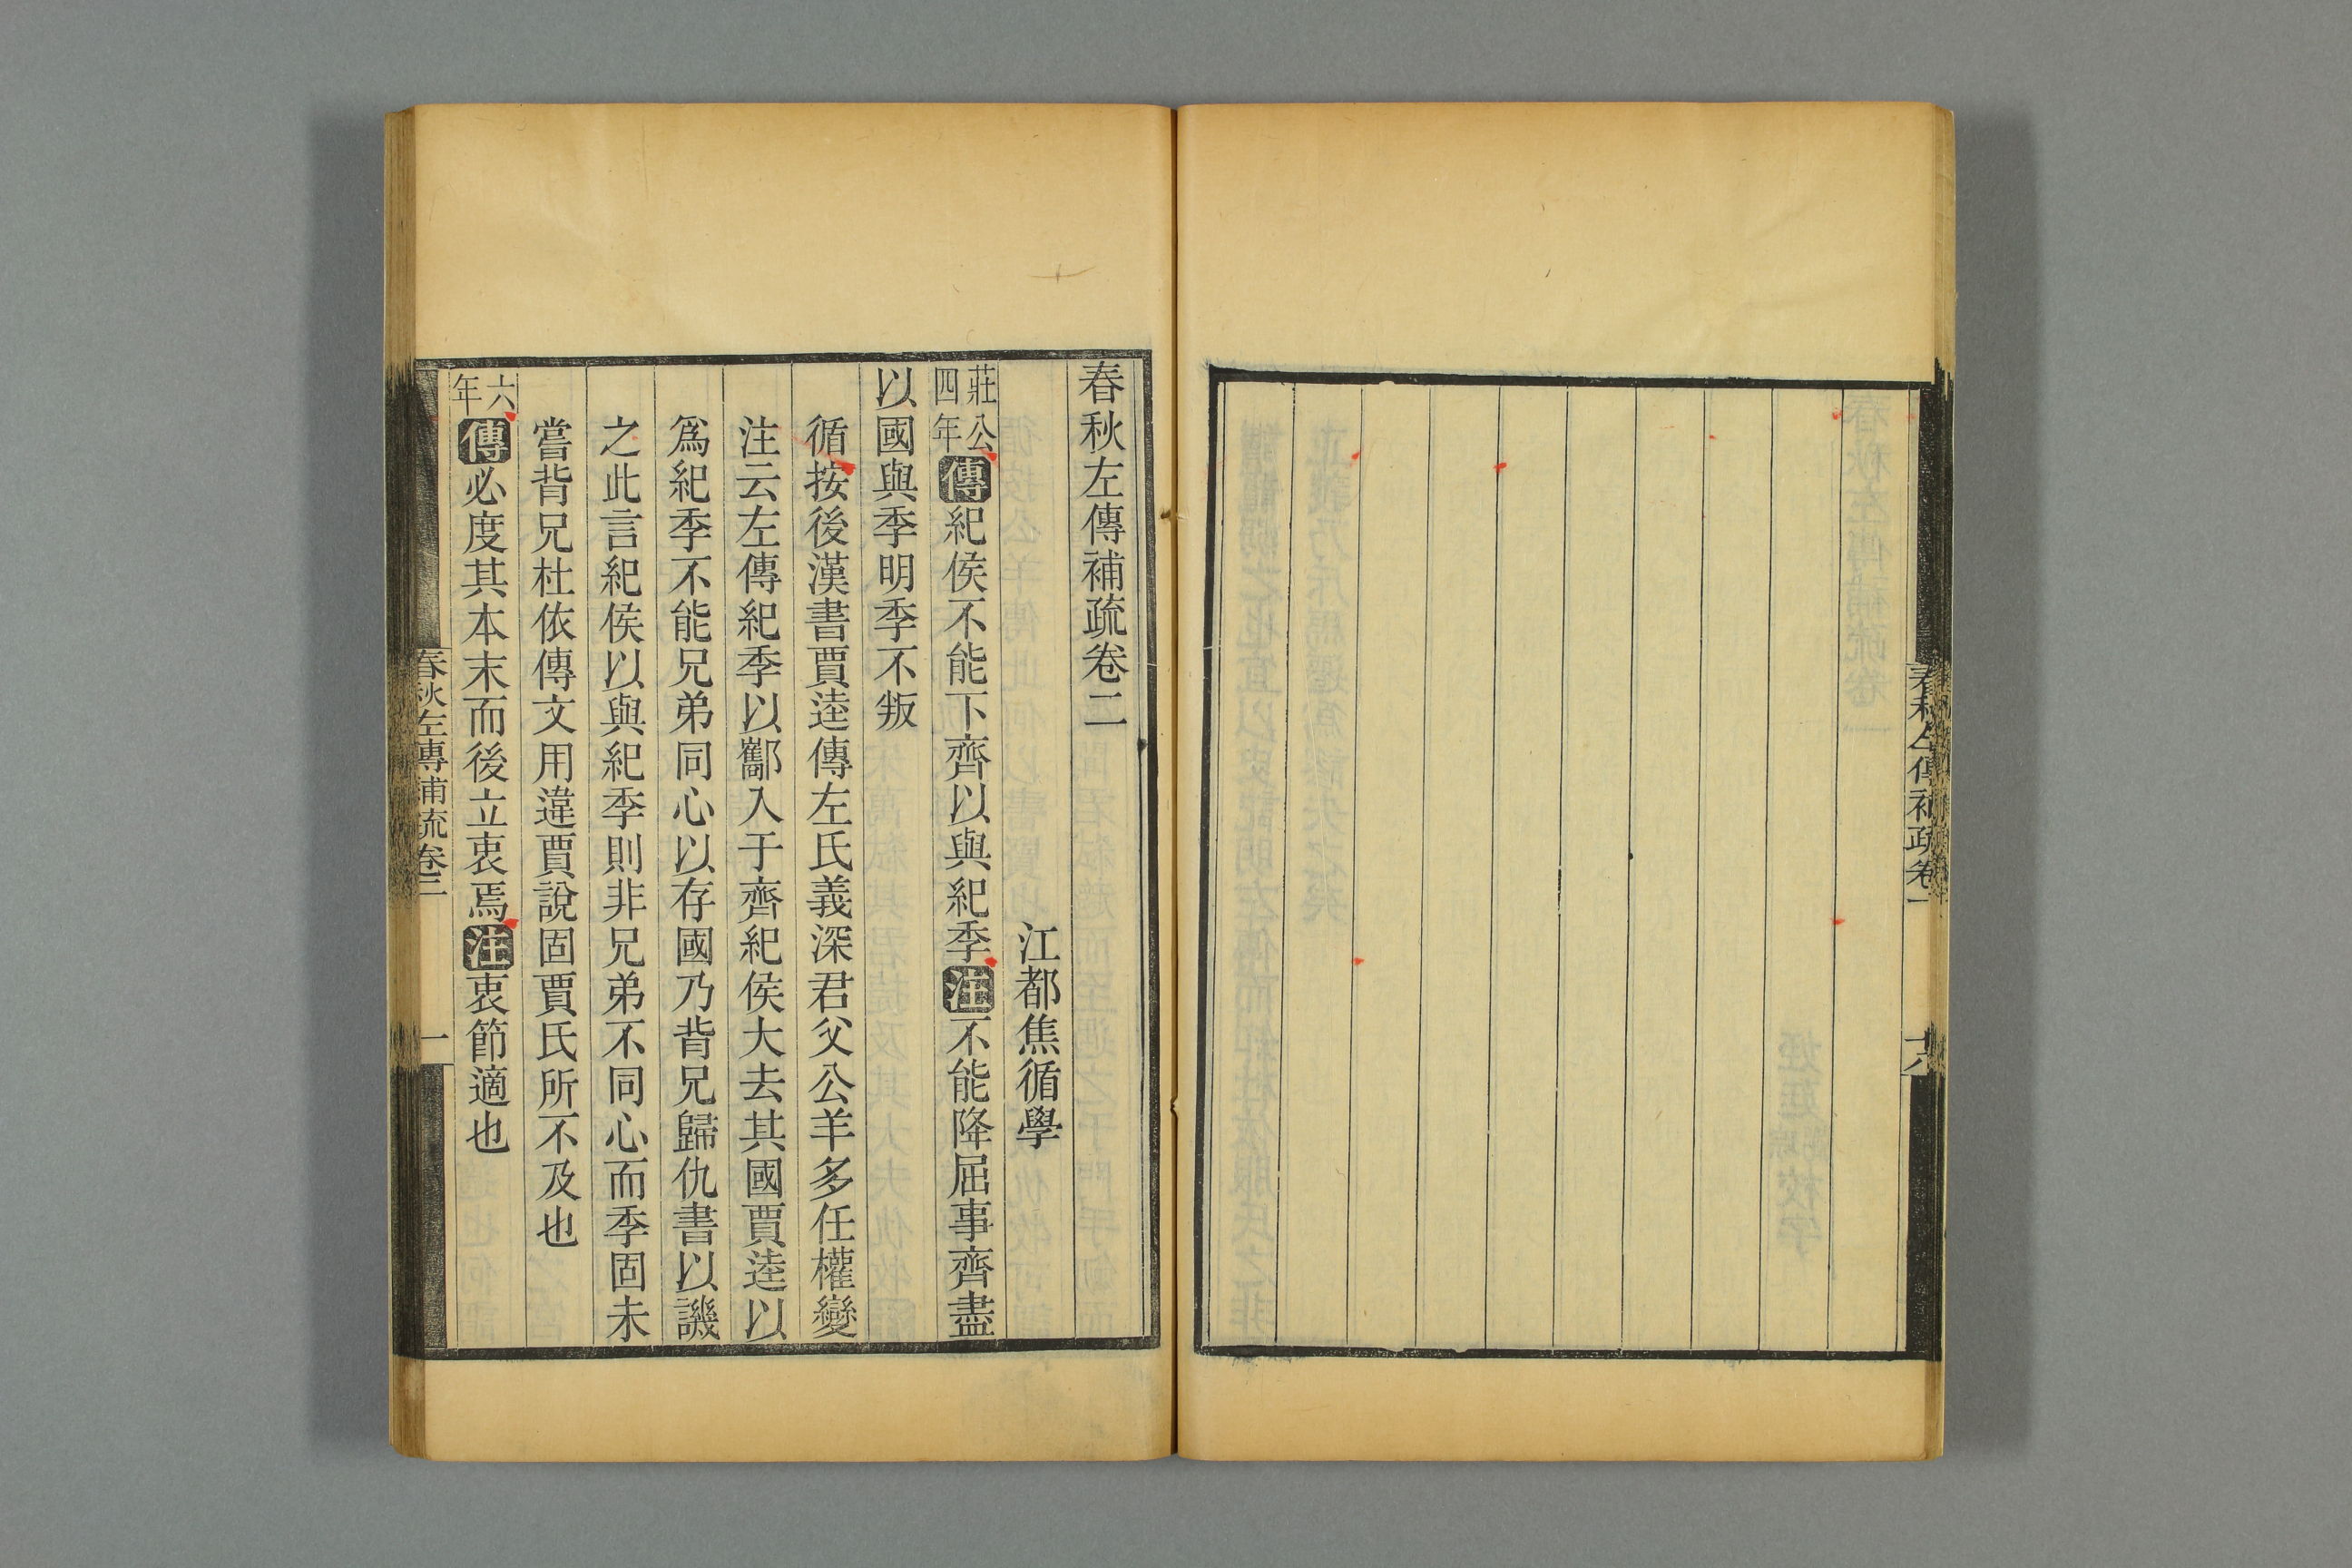 春秋左傳補疏卷一
十六
春秋左傳補疏卷二
江都焦循學
莊公四年傳紀侯不能下齊以與紀季注不能降屈事齊盡
以國與季明季不叛
循按後漢書賈逵傳左氏義深君父公羊多任權變
注云左傳紀季以酅入于齊紀侯大去其國賈逵以
爲紀季不能兄弟同心以存國乃背兄歸仇書以譏
之此言紀侯以與紀季則非兄弟不同心而季固未
嘗背兄杜依傳文用違賈說固賈氏所不及也
六年傳必度其本末而後立衷焉注衷節適也
春秋左傳補疏卷二
一